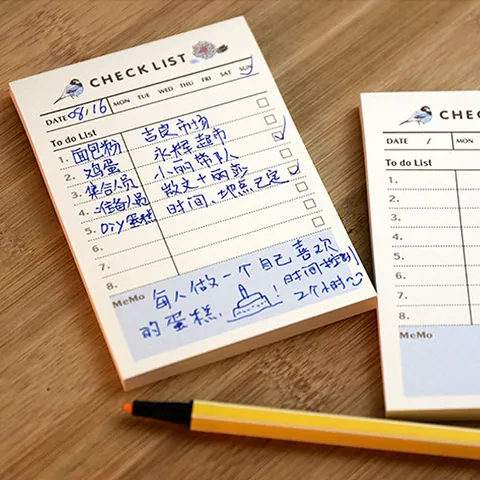 CHECK LIST
DATE 08/16 MON TUE WED THU FRI SAT SUN
To do List
1. 面包粉 吉良市场
2. 鸡蛋 永辉超市
3. 集合人员 小丽带队
4. 准备人员
5. DIY蛋糕 时间、地点已定
6.
7.
8.
MeMo 每人做一个自己喜欢
的蛋糕! 时间控制
2个小时
CHEC
DATE / MON
To do List
1.
2.
3.
4.
5.
6.
7.
8.
MeMo